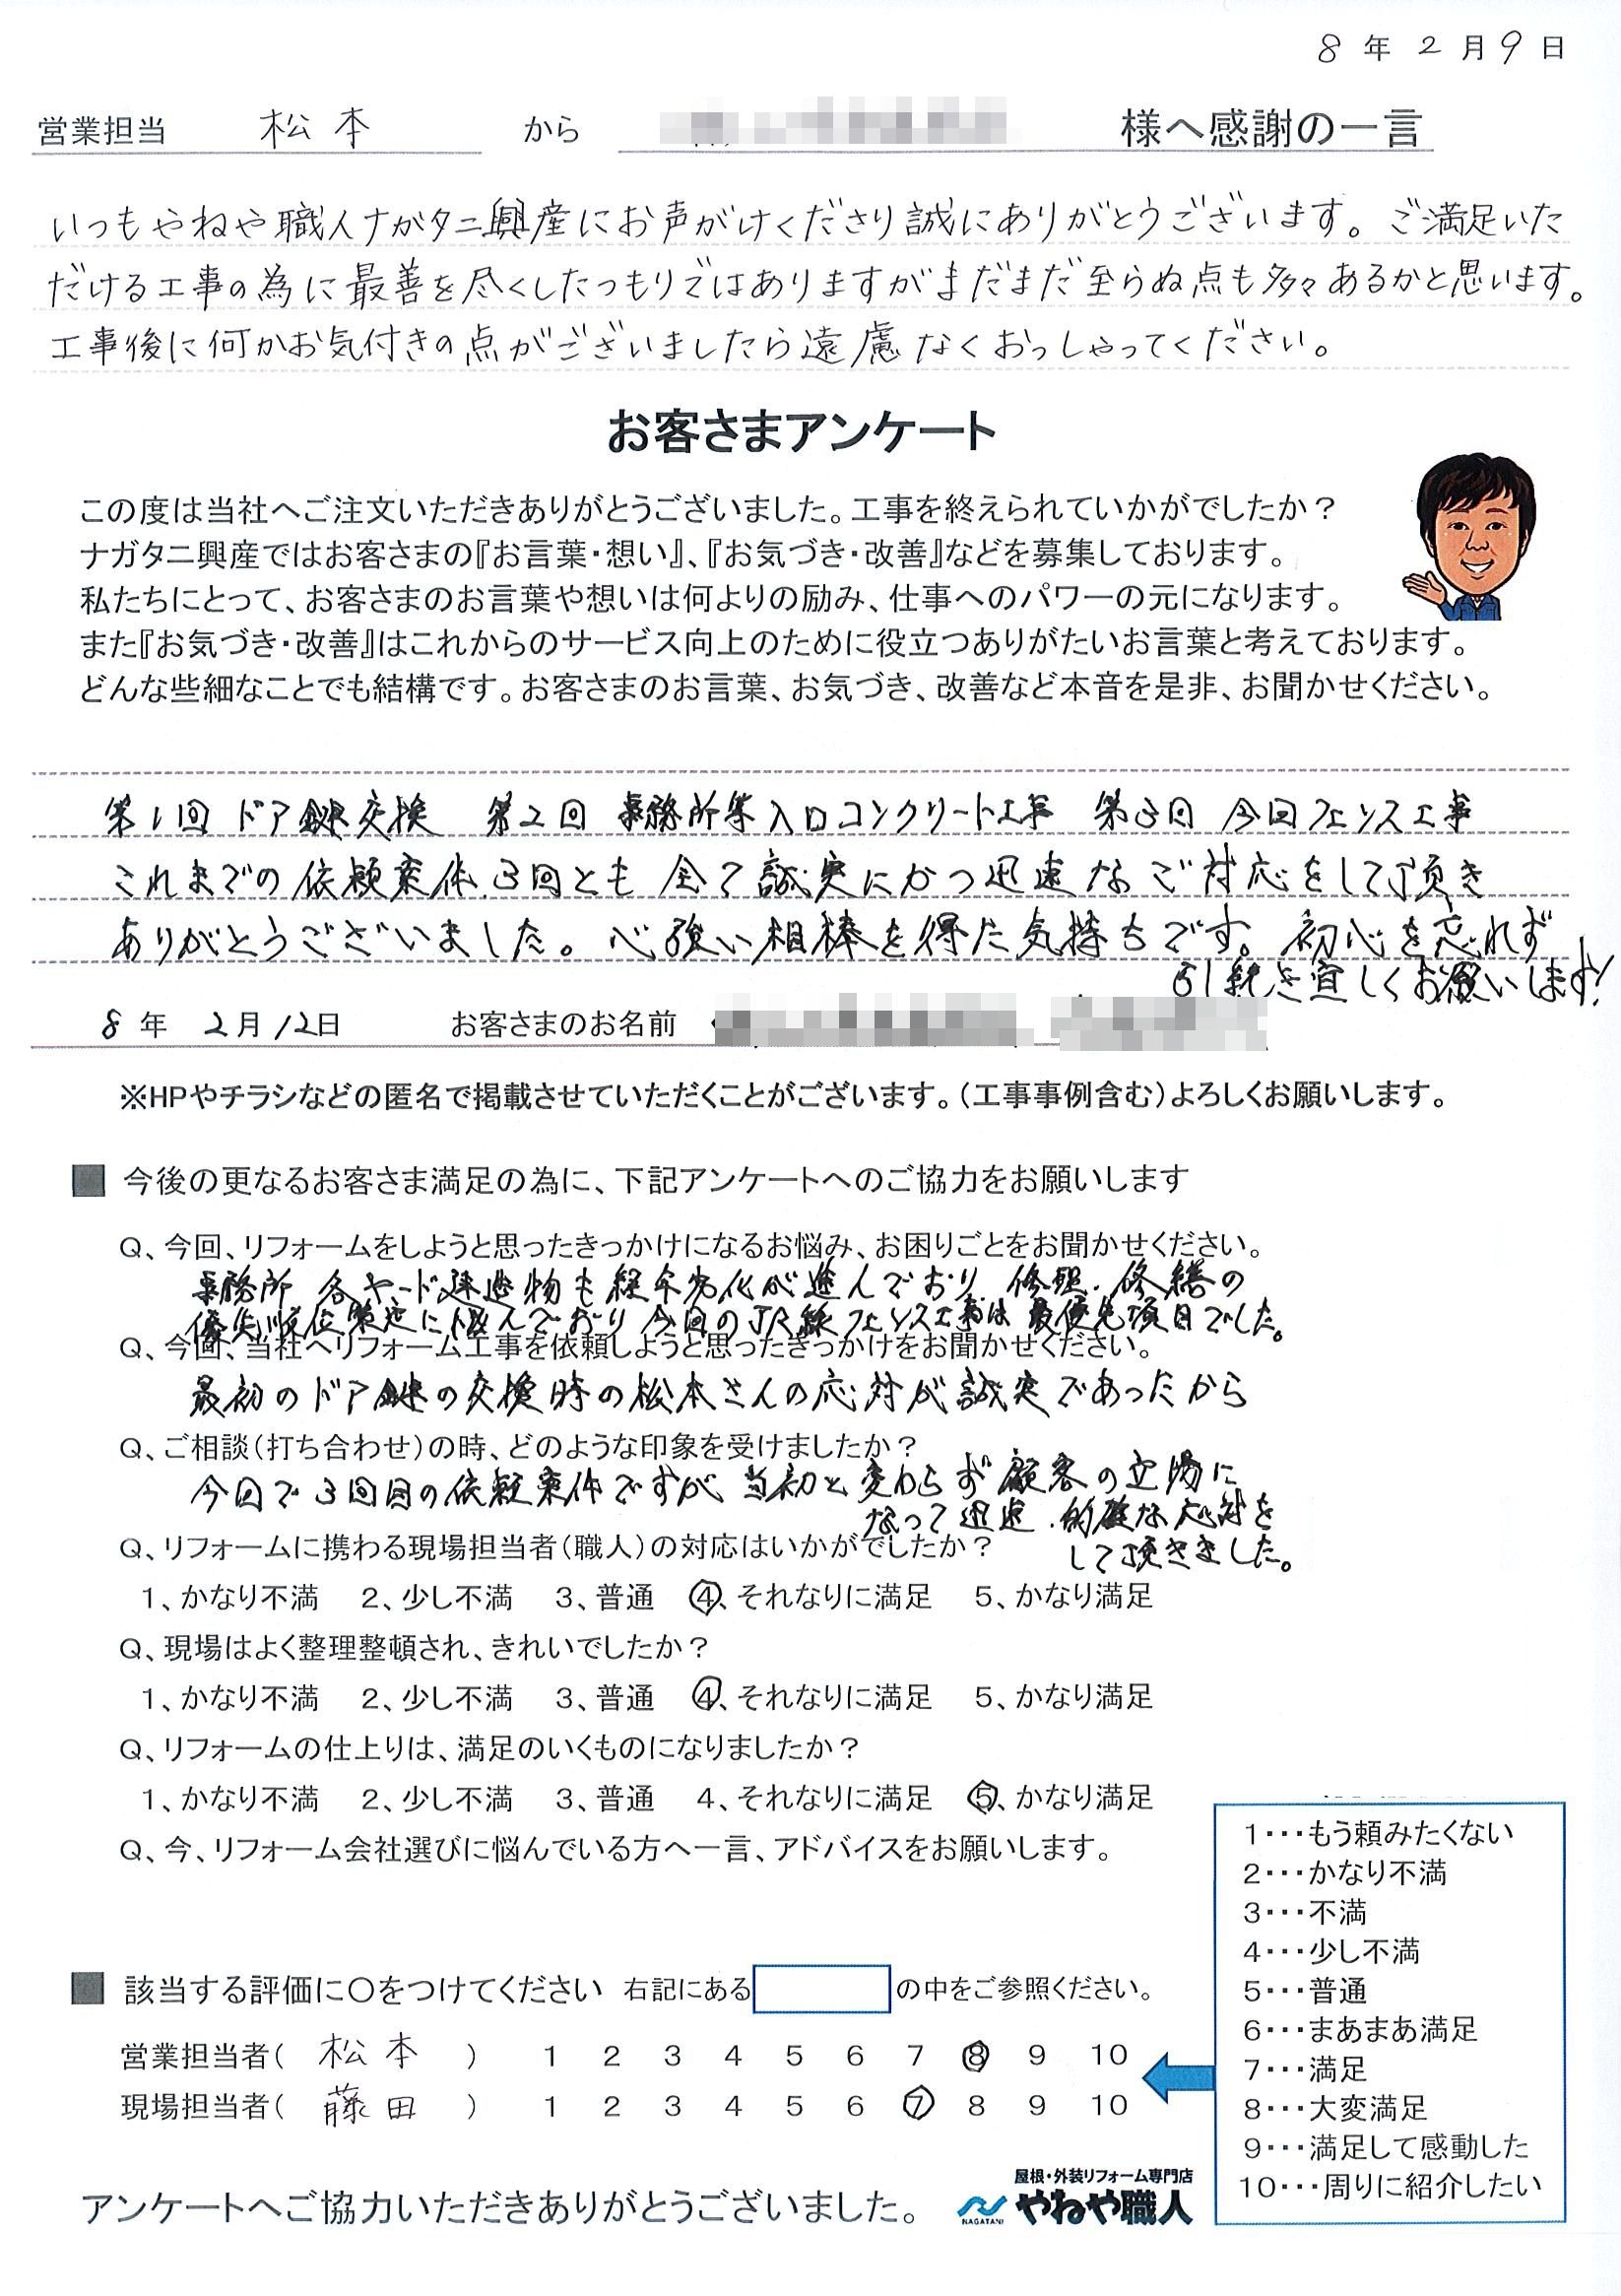 8年2月9日
営業担当 松本 から 様へ感謝の一言
いつもやねや職人ナガタニ興産にお声がけくださり誠にありがとうございます。ご満足いた
だける工事の為に最善を尽くしたつもりではありますがまだまだ至らぬ点も多々あるかと思います。
工事後に何かお気付きの点がございましたら遠慮なくおっしゃってください。
お客さまアンケート
この度は当社へご注文いただきありがとうございました。工事を終えられていかがでしたか？
ナガタニ興産ではお客さまの『お言葉・想い』、『お気づき・改善』などを募集しております。
私たちにとって、お客さまのお言葉や想いは何よりの励み、仕事へのパワーの元になります。
また『お気づき・改善』はこれからのサービス向上のために役立つありがたいお言葉と考えております。
どんな些細なことでも結構です。お客さまのお言葉、お気づき、改善など本音を是非、お聞かせください。
第1回 ドア鍵交換 第2回 事務所等入口コンクリート工事 第3回 今回フェンス工事
これまでの依頼案件、3回とも全て誠実にかつ迅速なご対応をして頂き
ありがとうございました。心強い相棒を得た気持ちです。初心を忘れず
引続き宜しくお願いします!
8年 2月12日 お客さまのお名前
※HPやチラシなどの匿名で掲載させていただくことがございます。（工事事例含む）よろしくお願いします。
■ 今後の更なるお客さま満足の為に、下記アンケートへのご協力をお願いします
Q、今回、リフォームをしようと思ったきっかけになるお悩み、お困りごとをお聞かせください。
事務所 各ヤード建造物も経年劣化が進んでおり、修理・修繕の
優先順位策定に悩んでおり今回のJR線フェンス工事は最優先項目でした。
Q、今回、当社へリフォーム工事を依頼しようと思ったきっかけをお聞かせください。
最初のドア鍵の交換時の松本さんの応対が誠実であったから
Q、ご相談（打ち合わせ）の時、どのような印象を受けましたか？
今回で3回目の依頼案件ですが、当初と変わらず顧客の立場に
なって迅速、的確な応対を
して頂きました。
Q、リフォームに携わる現場担当者（職人）の対応はいかがでしたか？
1、かなり不満 2、少し不満 3、普通 4、それなりに満足 5、かなり満足
Q、現場はよく整理整頓され、きれいでしたか？
1、かなり不満 2、少し不満 3、普通 4、それなりに満足 5、かなり満足
Q、リフォームの仕上りは、満足のいくものになりましたか？
1、かなり不満 2、少し不満 3、普通 4、それなりに満足 5、かなり満足
Q、今、リフォーム会社選びに悩んでいる方へ一言、アドバイスをお願いします。
1・・・もう頼みたくない
2・・・かなり不満
3・・・不満
4・・・少し不満
5・・・普通
6・・・まあまあ満足
7・・・満足
8・・・大変満足
9・・・満足して感動した
10・・・周りに紹介したい
■ 該当する評価に〇をつけてください 右記にある の中をご参照ください。
営業担当者（ 松本 ） 1 2 3 4 5 6 7 8 9 10
現場担当者（ 藤田 ） 1 2 3 4 5 6 7 8 9 10
アンケートへご協力いただきありがとうございました。
屋根・外装リフォーム専門店
NAGATANI やねや職人